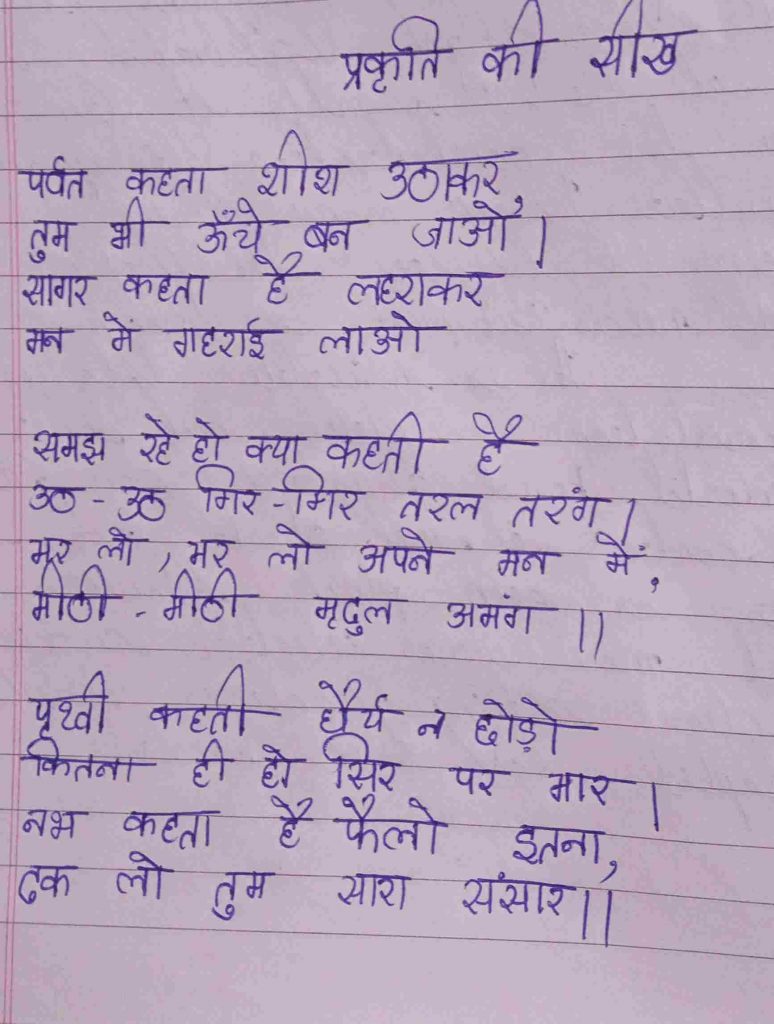 प्रकृति की सीख
पर्वत कहता शीश उठाकर,
तुम भी ऊँचे बन जाओ।
सागर कहता है लहराकर
मन में गहराई लाओ
समझ रहे हो क्या कहती है
उठ - उठ गिर - गिर तरल तरंग।
भर लो, भर लो अपने मन में,
मीठी - मीठी मृदुल अमंग ॥
पृथ्वी कहती धैर्य न छोड़ो
कितना ही हो सिर पर भार।
नभ कहता है फैलो इतना,
ढक लो तुम सारा संसार॥